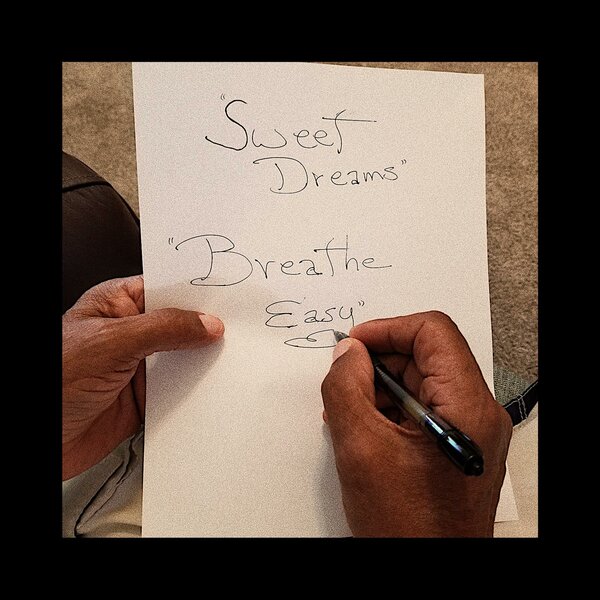 "Sweet
Dreams"
"Breathe
Easy"